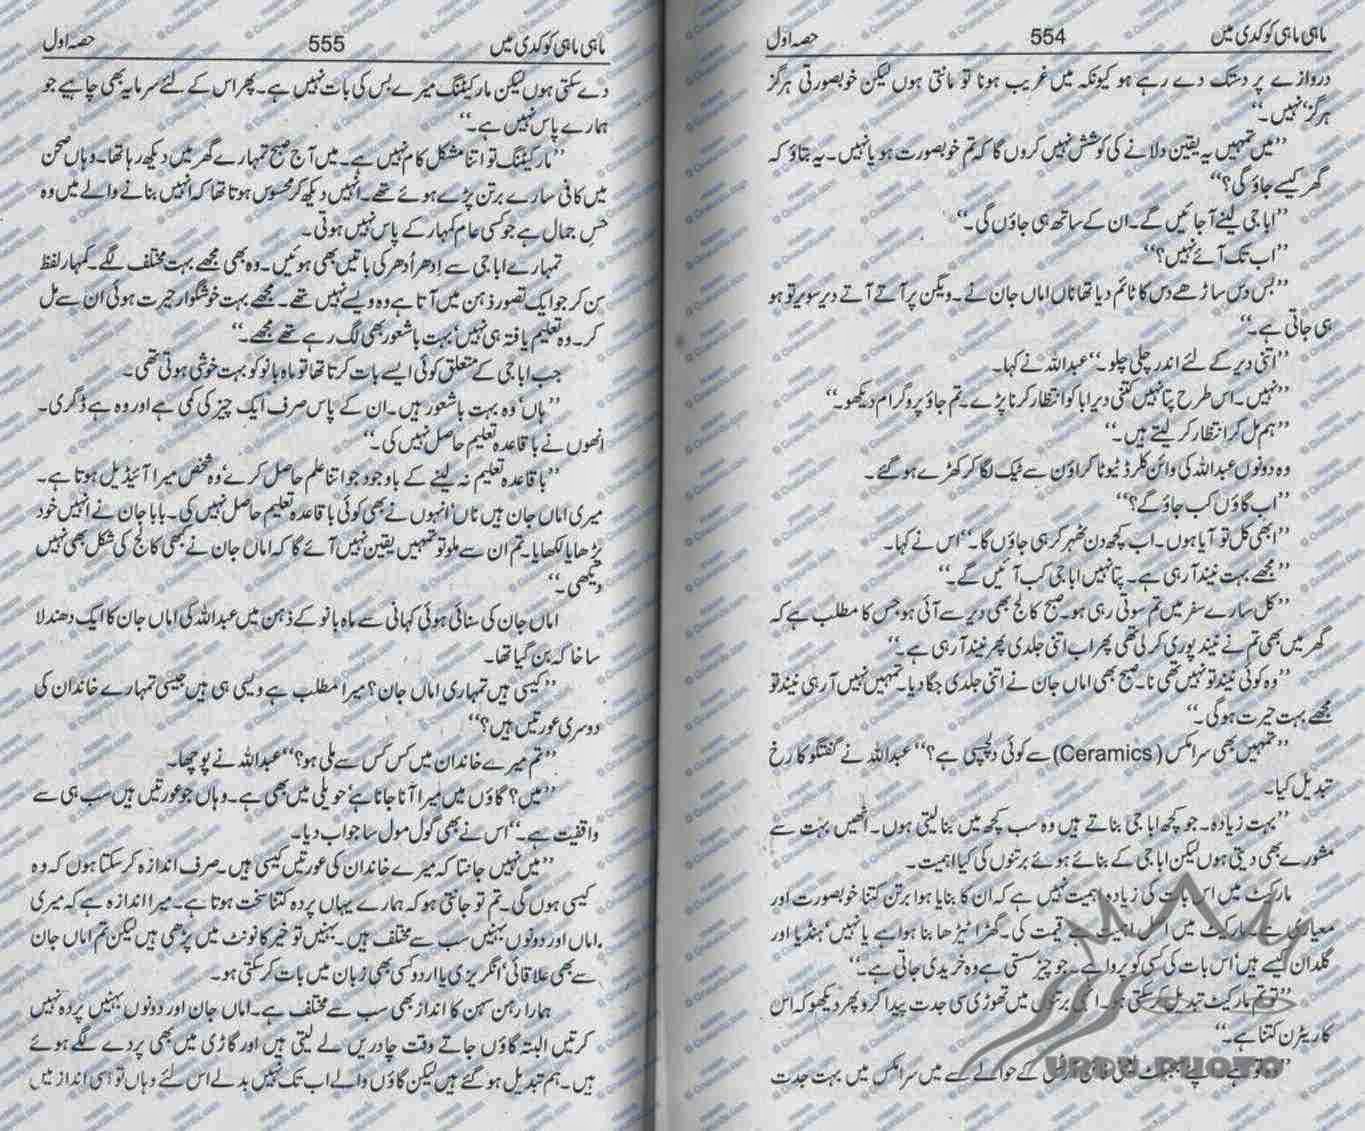 ماہی ماہی کوکدی میں 554 حصہ اول
دروازے پر دستک دے رہے ہو کیونکہ میں غریب ہونا تو مانتی ہوں لیکن خوبصورتی ہرگز
ہرگز نہیں۔‘‘
’’میں تمہیں یہ یقین دلانے کی کوشش نہیں کروں گا کہ تم خوبصورت ہو یا نہیں۔ یہ بتاؤ کہ
گھر کیسے جاؤ گی؟‘‘
’’ابا جی لینے آ جائیں گے۔ ان کے ساتھ ہی جاؤں گی۔‘‘
’’اب تک آئے نہیں؟‘‘
’’بس دس ساڑھے دس کا ٹائم دیا تھا ناں اماں جان نے۔ ویگن پر آتے آتے دیر سویر تو ہو
ہی جاتی ہے۔‘‘
’’اتنی دیر کے لئے اندر چلی چلو۔‘‘ عبداللہ نے کہا۔
’’نہیں۔ اس طرح پتا نہیں کتنی دیر ابا کو انتظار کرنا پڑے۔ تم جاؤ پروگرام دیکھو۔‘‘
’’ہم مل کر انتظار کر لیتے ہیں۔‘‘
وہ دونوں عبداللہ کی وائن کلرڈ ٹیوٹا کراؤن سے ٹیک لگا کر کھڑے ہو گئے۔
’’اب گاؤں کب جاؤ گے؟‘‘
’’ابھی کل تو آیا ہوں۔ اب کچھ دن ٹھہر کر ہی جاؤں گا۔‘‘ اس نے کہا۔
’’مجھے بہت نیند آ رہی ہے۔ پتا نہیں ابا جی کب آئیں گے۔‘‘
’’کل سارے سفر میں تم سوتی رہی ہو۔ صبح کالج بھی دیر سے آئی ہو جس کا مطلب ہے کہ
گھر میں بھی تم نے نیند پوری کر لی تھی پھر اب اتنی جلدی پھر نیند آ رہی ہے۔‘‘
’’وہ کوئی نیند تو نہیں تھی نا۔ صبح بھی اماں جان نے اتنی جلدی جگا دیا۔ تمہیں نہیں آ رہی نیند تو
مجھے بہت حیرت ہو گی۔‘‘
’’تمہیں بھی سرامکس (Ceramics) سے کوئی دلچسپی ہے؟‘‘ عبداللہ نے گفتگو کا رخ
تبدیل کیا۔
’’بہت زیادہ۔ جو کچھ ابا جی بناتے ہیں وہ سب کچھ میں بنا لیتی ہوں۔ انھیں بہت سے
مشورے بھی دیتی ہوں لیکن ابا جی کے بنائے ہوئے برتنوں کی کیا اہمیت۔
مارکیٹ میں اس بات کی زیادہ اہمیت نہیں ہے کہ ان کا بنایا ہوا برتن کتنا خوبصورت اور
معیاری ہے۔ مارکیٹ میں اصل اہمیت ہے قیمت کی۔ گھڑا ٹیڑھا بنا ہوا ہے یا نہیں‘ ہنڈیا اور
گلدان کیسے ہیں‘ اس بات کی کسی کو پروا ہے۔ جو چیز سستی ہے وہ خریدی جاتی ہے۔‘‘
’’تو تم مارکیٹ تبدیل کر سکتی ہو۔ برتنوں میں تھوڑی سی جدت پیدا کرو پھر دیکھو کہ اس
کا ریٹرن کتنا ہے۔‘‘
کے حوالے سے میں سرامکس میں بہت جدت
URDU PHOTO
ماہی ماہی کوکدی میں 555 حصہ اول
دے سکتی ہوں لیکن مارکیٹنگ میرے بس کی بات نہیں ہے۔ پھر اس کے لئے سرمایہ بھی چاہیے جو
ہمارے پاس نہیں ہے۔‘‘
’’مارکیٹنگ تو اتنا مشکل کام نہیں ہے۔ میں آج صبح تمہارے گھر میں دیکھ رہا تھا۔ وہاں صحن
میں کافی سارے برتن پڑے ہوئے تھے۔ انہیں دیکھ کر محسوس ہوتا تھا کہ انہیں بنانے والے میں وہ
حسِ جمال ہے جو کسی عام کمہار کے پاس نہیں ہوتی۔
تمہارے ابا جی سے اِدھر اُدھر کی باتیں بھی ہوئیں۔ وہ بھی مجھے بہت مختلف لگے۔ کمہار لفظ
سن کر جو ایک تصور ذہن میں آتا ہے وہ ویسے نہیں تھے۔ مجھے بہت خوشگوار حیرت ہوئی ان سے مل
کر۔ وہ تعلیم یافتہ ہی نہیں‘ بہت باشعور بھی لگ رہے تھے مجھے۔‘‘
جب ابا جی کے متعلق کوئی ایسے بات کرتا تھا تو ماہ بانو کو بہت خوشی ہوتی تھی۔
’’ہاں‘ وہ بہت باشعور ہیں۔ ان کے پاس صرف ایک چیز کی کمی ہے اور وہ ہے ڈگری۔
انھوں نے باقاعدہ تعلیم حاصل نہیں کی۔‘‘
’’باقاعدہ تعلیم نہ لینے کے باوجود جو اتنا علم حاصل کرے‘ وہ شخص میرا آئیڈیل ہوتا ہے۔
میری اماں جان ہیں ناں‘ انہوں نے بھی کوئی باقاعدہ تعلیم حاصل نہیں کی۔ بابا جان نے انہیں خود
پڑھایا لکھایا۔ تم ان سے ملو تو تمہیں یقین نہیں آئے گا کہ اماں جان نے کبھی کالج کی شکل بھی نہیں
دیکھی۔‘‘
اماں جان کی سنائی ہوئی کہانی سے ماہ بانو کے ذہن میں عبداللہ کی اماں جان کا ایک دھندلا
سا خاکہ بن گیا تھا۔
’’کیسی ہیں تمہاری اماں جان؟ میرا مطلب ہے ویسی ہی ہیں جیسی تمہارے خاندان کی
دوسری عورتیں ہیں؟‘‘
’’تم میرے خاندان میں کس کس سے ملی ہو؟‘‘ عبداللہ نے پوچھا۔
’’میں؟ گاؤں میں میرا آنا جانا ہے‘ حویلی میں بھی ہے۔ وہاں جو عورتیں ہیں سب ہی سے
واقفیت ہے۔‘‘ اس نے بھی گول مول سا جواب دیا۔
’’میں نہیں جانتا کہ میرے خاندان کی عورتیں کیسی ہیں۔ صرف اندازہ کر سکتا ہوں کہ وہ
کیسی ہوں گی۔ تم تو جانتی ہو کہ ہمارے یہاں پردہ کتنا سخت ہوتا ہے۔ میرا اندازہ ہے کہ میری
اماں اور دونوں بہنیں سب سے مختلف ہیں۔ بہنیں تو خیر کانونٹ میں پڑھی ہیں لیکن تم اماں جان
سے بھی علاقائی‘ انگریزی یا اردو کسی بھی زبان میں بات کر سکتی ہو۔
ہمارا رہن سہن کا انداز بھی سب سے مختلف ہے۔ اماں جان اور دونوں بہنیں پردہ نہیں
کرتیں البتہ گاؤں جاتے وقت چادریں لے لیتی ہیں اور گاڑی میں بھی پردے لگے ہوئے
ہیں۔ ہم تبدیل ہو گئے ہیں لیکن گاؤں والے اب تک نہیں بدلے اس لئے وہاں تو اسی انداز میں